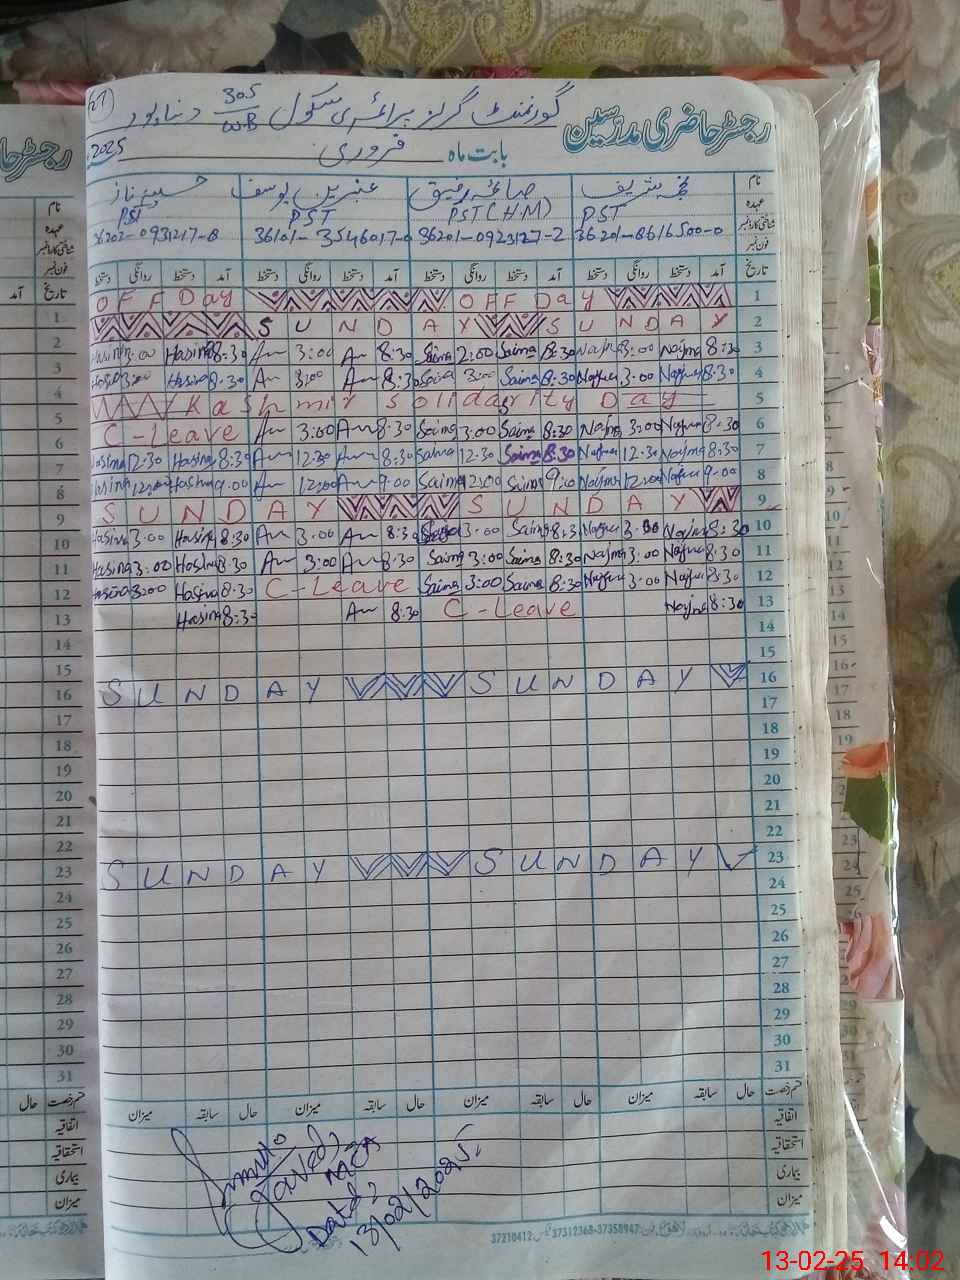 رجسٹر حاضری مدرسین
گورنمنٹ گرلز پرائمری سکول 305/WB دنیاپور
بابت ماہ فروری 2025
نام نجمہ شریف صائمہ رفیق عنبرین یوسف حسینہ ناز
عہدہ PST PST (HM) PST PST
شناختی کارڈ نمبر 36201-8616500-0 36201-0923127-2 36101-3546017-0 36202-0931217-8
فون نمبر
تاریخ آمد دستخط روانگی دستخط آمد دستخط روانگی دستخط آمد دستخط روانگی دستخط آمد دستخط روانگی دستخط
OFF Day OFF Day 1
SUNDAY SUNDAY 2
Hasina 3:00 Hasina 8:30 An 3:00 An 8:30 Saima 2:00 Saima 8:30 Najma 3:00 Najma 8:30 3
3:00 Hasina 8:30 An 3:00 An 8:30 Saima 3:00 Saima 8:30 Najma 3:00 Najma 8:30 4
Kashmir Solidarity Day 5
C-Leave An 3:00 An 8:30 Saima 3:00 Saima 8:30 Najma 3:00 Najma 8:30 6
Hasina 12:30 Hasina 8:30 An 12:30 An 8:30 Saima 12:30 Saima 8:30 Najma 12:30 Najma 8:30 7
Hasina 12:00 Hasina 9:00 An 12:00 An 9:00 Saima 12:00 Saima 9:00 Najma 12:00 Najma 9:00 8
SUNDAY SUNDAY 9
Hasina 3:00 Hasina 8:30 An 3:00 An 8:30 3:00 Saima 8:30 Najma 3:00 Najma 8:30 10
Hasina 3:00 Hasina 8:30 An 3:00 An 8:30 Saima 3:00 Saima 8:30 Najma 3:00 Najma 8:30 11
Hasina 3:00 Hasina 8:30 C-Leave Saima 3:00 Saima 8:30 Najma 3:00 Najma 8:30 12
Hasina 8:30 An 8:30 C-Leave Najma 8:30 13
14
15
SUNDAY SUNDAY 16
17
18
19
20
21
22
SUNDAY SUNDAY 23
24
25
26
27
28
29
30
31
قسم رخصت حال سابقہ میزان حال سابقہ میزان حال سابقہ میزان حال سابقہ میزان
اتفاقیہ
استحقاقیہ
بیماری
میزان
Javed
MEA
Dated,
13/02/2025
37210412 37312368-37358947
رجسٹر حا
نام
عہدہ
شناختی کارڈ نمبر
فون نمبر
تاریخ آمد
1
2
3
4
5
6
7
8
9
10
11
12
13
14
15
16
17
18
19
20
21
22
23
24
25
26
27
28
29
30
31
قسم رخصت حال
اتفاقیہ
استحقاقیہ
بیماری
میزان
13-02-25 14:02